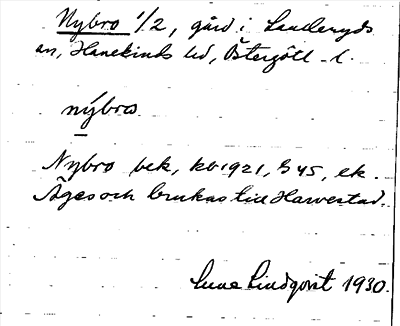 Nybro 1/2, gård i Landeryds
sn, Hanekinds hd, Östergötl. l.
nýbro
Nybro bek, kb 1921, § 45, ek.
Äges och brukas till Harvestad.
Sune Lindqvist 1930.